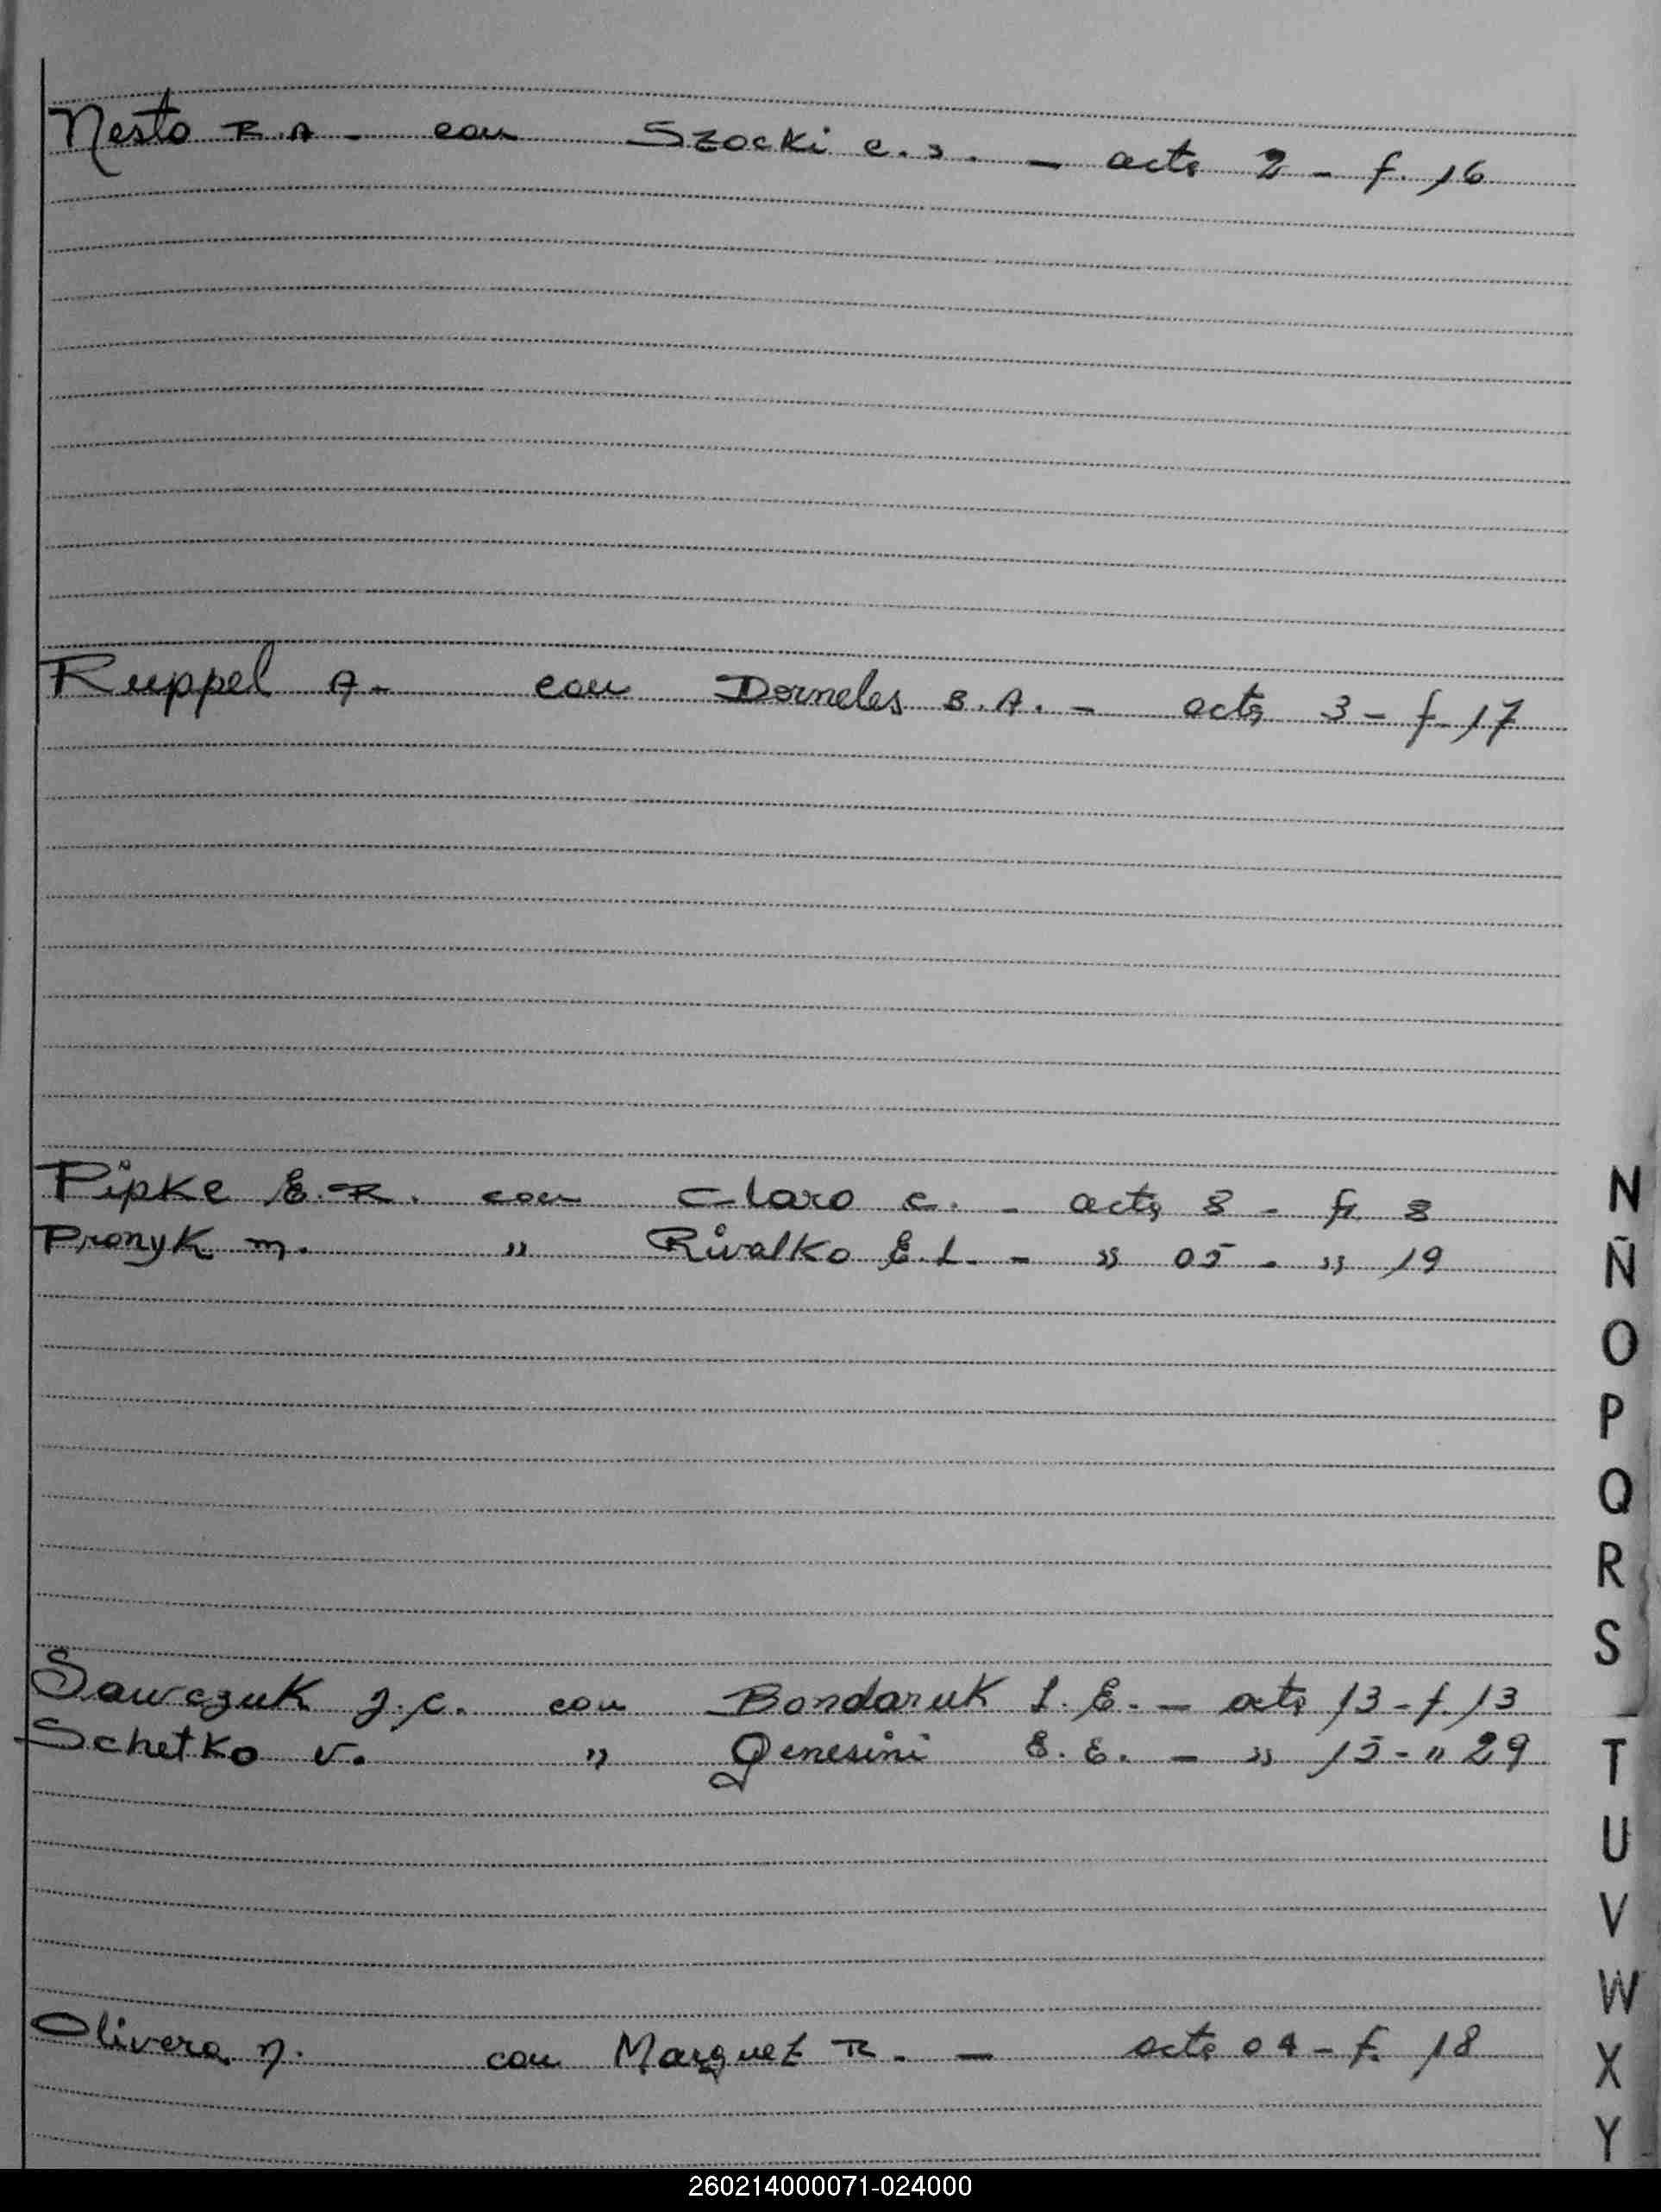 Nesto R.A - con Szocki c.s. - acta 2 - f. 16
Ruppel A- con Dorneles B.A. - acta 3 - f. 17
Pipke E.R. con Claro c. - acta 8 - f. 8
Pronyk m. " Rivalko E.L. - " 05 - " 19
Sawczuk J.C. con Bondaruk I.E. - acta 13 - f. 13
Schetko V. " Genesini E.E. - " 15 - " 29
Olivera N. con Marquet R. - acta 04 - f. 18
N
Ñ
O
P
Q
R
S
T
U
V
W
X
Y
260214000071-024000